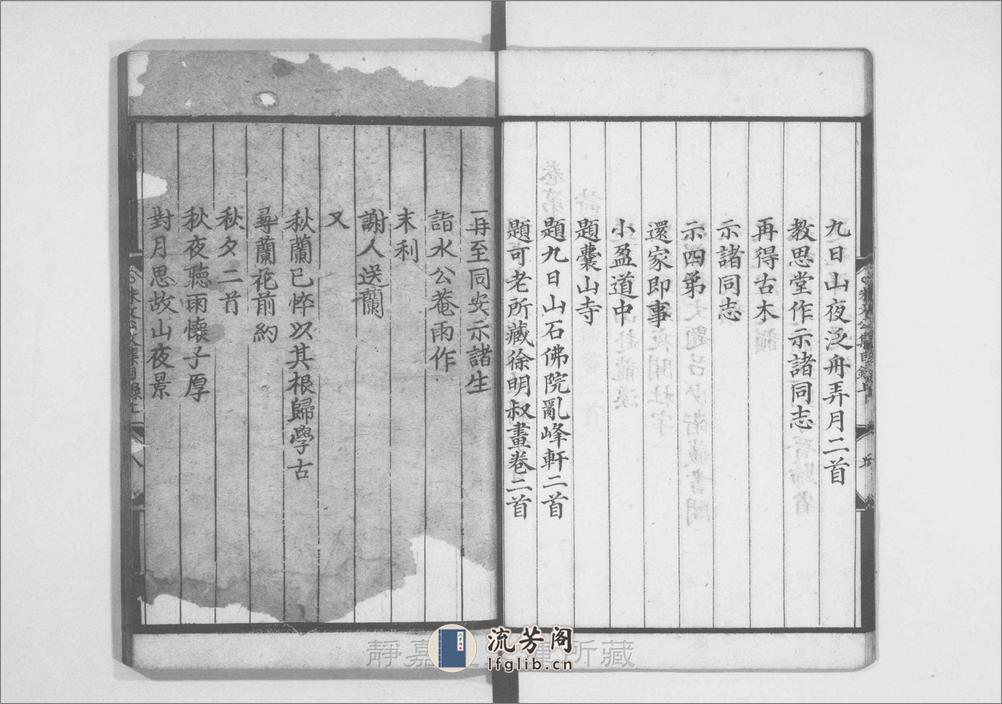 九日山夜泛舟弄月二首
教思堂作示諸同志
再得古木
示諸同志
示四弟
還家即事
小盈道中
題囊山寺
題九日山石佛院亂峰軒二首
題可老所藏徐明叔畫卷二首
再至同安示諸生
詣水公菴雨作
末利
謝人送蘭
又
秋蘭已悴以其根歸學古
尋蘭花前約
秋夕二首
秋夜聽雨懷子厚
對月思故山夜景
流芳阁
lfglib.cn
靜嘉
所藏